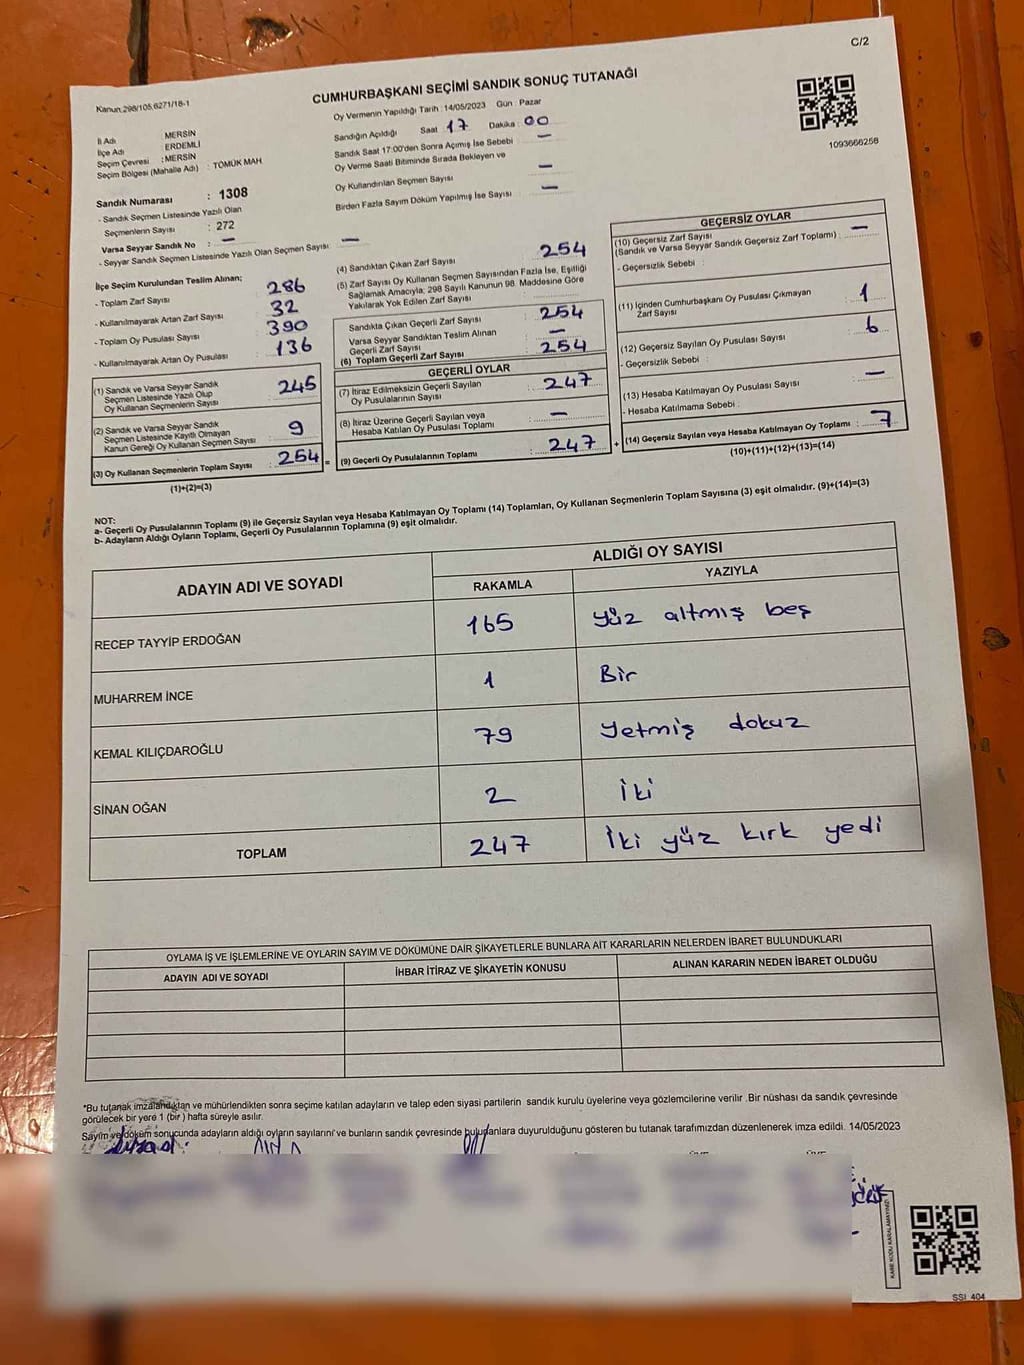 C/2
Kanun:298/105,6271/18-1
CUMHURBAŞKANI SEÇİMİ SANDIK SONUÇ TUTANAĞI
Oy Vermenin Yapıldığı Tarih : 14/05/2023 Gün : Pazar
1093666258
İl Adı : MERSİN
İlçe Adı : ERDEMLİ
Seçim Çevresi : MERSİN
Seçim Bölgesi (Mahalle Adı) : TÖMÜK MAH
Sandık Numarası : 1308
- Sandık Seçmen Listesinde Yazılı Olan
Seçmenlerin Sayısı : 272
Varsa Seyyar Sandık No : —
- Seyyar Sandık Seçmen Listesinde Yazılı Olan Seçmen Sayısı: —
Sandığın Açıldığı Saat 17 Dakika : 00
Sandık Saat 17:00'den Sonra Açımış İse Sebebi : —
Oy Verme Saati Bitiminde Sırada Bekleyen ve
Oy Kullandırılan Seçmen Sayısı : —
Birden Fazla Sayım Döküm Yapılmış İse Sayısı : —
İlçe Seçim Kurulundan Teslim Alınan;
- Toplam Zarf Sayısı : 286
- Kullanılmayarak Artan Zarf Sayısı : 32
- Toplam Oy Pusulası Sayısı : 390
- Kullanılmayarak Artan Oy Pusulası : 136
(1) Sandık ve Varsa Seyyar Sandık
Seçmen Listesinde Yazılı Olup
Oy Kullanan Seçmenlerin Sayısı : 245
(2) Sandık ve Varsa Seyyar Sandık
Seçmen Listesinde Kayıtlı Olmayan
Kanun Gereği Oy Kullanan Seçmen Sayısı : 9
(3) Oy Kullanan Seçmenlerin Toplam Sayısı : 254
(1)+(2)=(3)
(4) Sandıktan Çıkan Zarf Sayısı : 254
(5) Zarf Sayısı Oy Kullanan Seçmen Sayısından Fazla İse, Eşitliği
Sağlamak Amacıyla; 298 Sayılı Kanunun 98. Maddesine Göre
Yakılarak Yok Edilen Zarf Sayısı :
Sandıkta Çıkan Geçerli Zarf Sayısı : 254
Varsa Seyyar Sandıktan Teslim Alınan
Geçerli Zarf Sayısı : —
(6) Toplam Geçerli Zarf Sayısı : 254
GEÇERLİ OYLAR
(7) İtiraz Edilmeksizin Geçerli Sayılan
Oy Pusulasının Sayısı : 247
(8) İtiraz Üzerine Geçerli Sayılan veya
Hesaba Katılan Oy Pusulası Toplamı : —
(9) Geçerli Oy Pusulalarının Toplamı : 247
GEÇERSİZ OYLAR
(10) Geçersiz Zarf Sayısı
(Sandık ve Varsa Seyyar Sandık Geçersiz Zarf Toplamı) : —
- Geçersizlik Sebebi :
(11) İçinden Cumhurbaşkanı Oy Pusulası Çıkmayan
Zarf Sayısı : 1
(12) Geçersiz Sayılan Oy Pusulası Sayısı : 6
- Geçersizlik Sebebi :
(13) Hesaba Katılmayan Oy Pusulası Sayısı : —
- Hesaba Katılmama Sebebi :
(14) Geçersiz Sayılan veya Hesaba Katılmayan Oy Toplamı : 7
(10)+(11)+(12)+(13)=(14)
NOT:
a- Geçerli Oy Pusulalarının Toplamı (9) ile Geçersiz Sayılan veya Hesaba Katılmayan Oy Toplamı (14) Toplamları, Oy Kullanan Seçmenlerin Toplam Sayısına (3) eşit olmalıdır. (9)+(14)=(3)
b- Adayların Aldığı Oyların Toplamı, Geçerli Oy Pusulalarının Toplamına (9) eşit olmalıdır.
ADAYIN ADI VE SOYADI ALDIĞI OY SAYISI
RAKAMLA YAZIYLA
RECEP TAYYİP ERDOĞAN 165 yüz altmış beş
MUHARREM İNCE 1 Bir
KEMAL KILIÇDAROĞLU 79 Yetmiş dokuz
SİNAN OĞAN 2 İki
TOPLAM 247 İki yüz kırk yedi
OYLAMA İŞ VE İŞLEMLERİNE VE OYLARIN SAYIM VE DÖKÜMÜNE DAİR ŞİKAYETLERLE BUNLARA AİT KARARLARIN NELERDEN İBARET BULUNDUKLARI
ADAYIN ADI VE SOYADI İHBAR İTİRAZ VE ŞİKAYETİN KONUSU ALINAN KARARIN NEDEN İBARET OLDUĞU
*Bu tutanak imzalandıktan ve mühürlendikten sonra seçime katılan adayların ve talep eden siyasi partilerin sandık kurulu üyelerine veya gözlemcilerine verilir .Bir nüshası da sandık çevresinde
görülecek bir yere 1 (bir ) hafta süreyle asılır.
Sayım ve döküm sonucunda adayların aldığı oyların sayılarını ve bunların sandık çevresinde bulunanlara duyurulduğunu gösteren bu tutanak tarafımızdan düzenlenerek imza edildi. 14/05/2023
KARE KODU KARALAMAYINIZ!
SSI 404